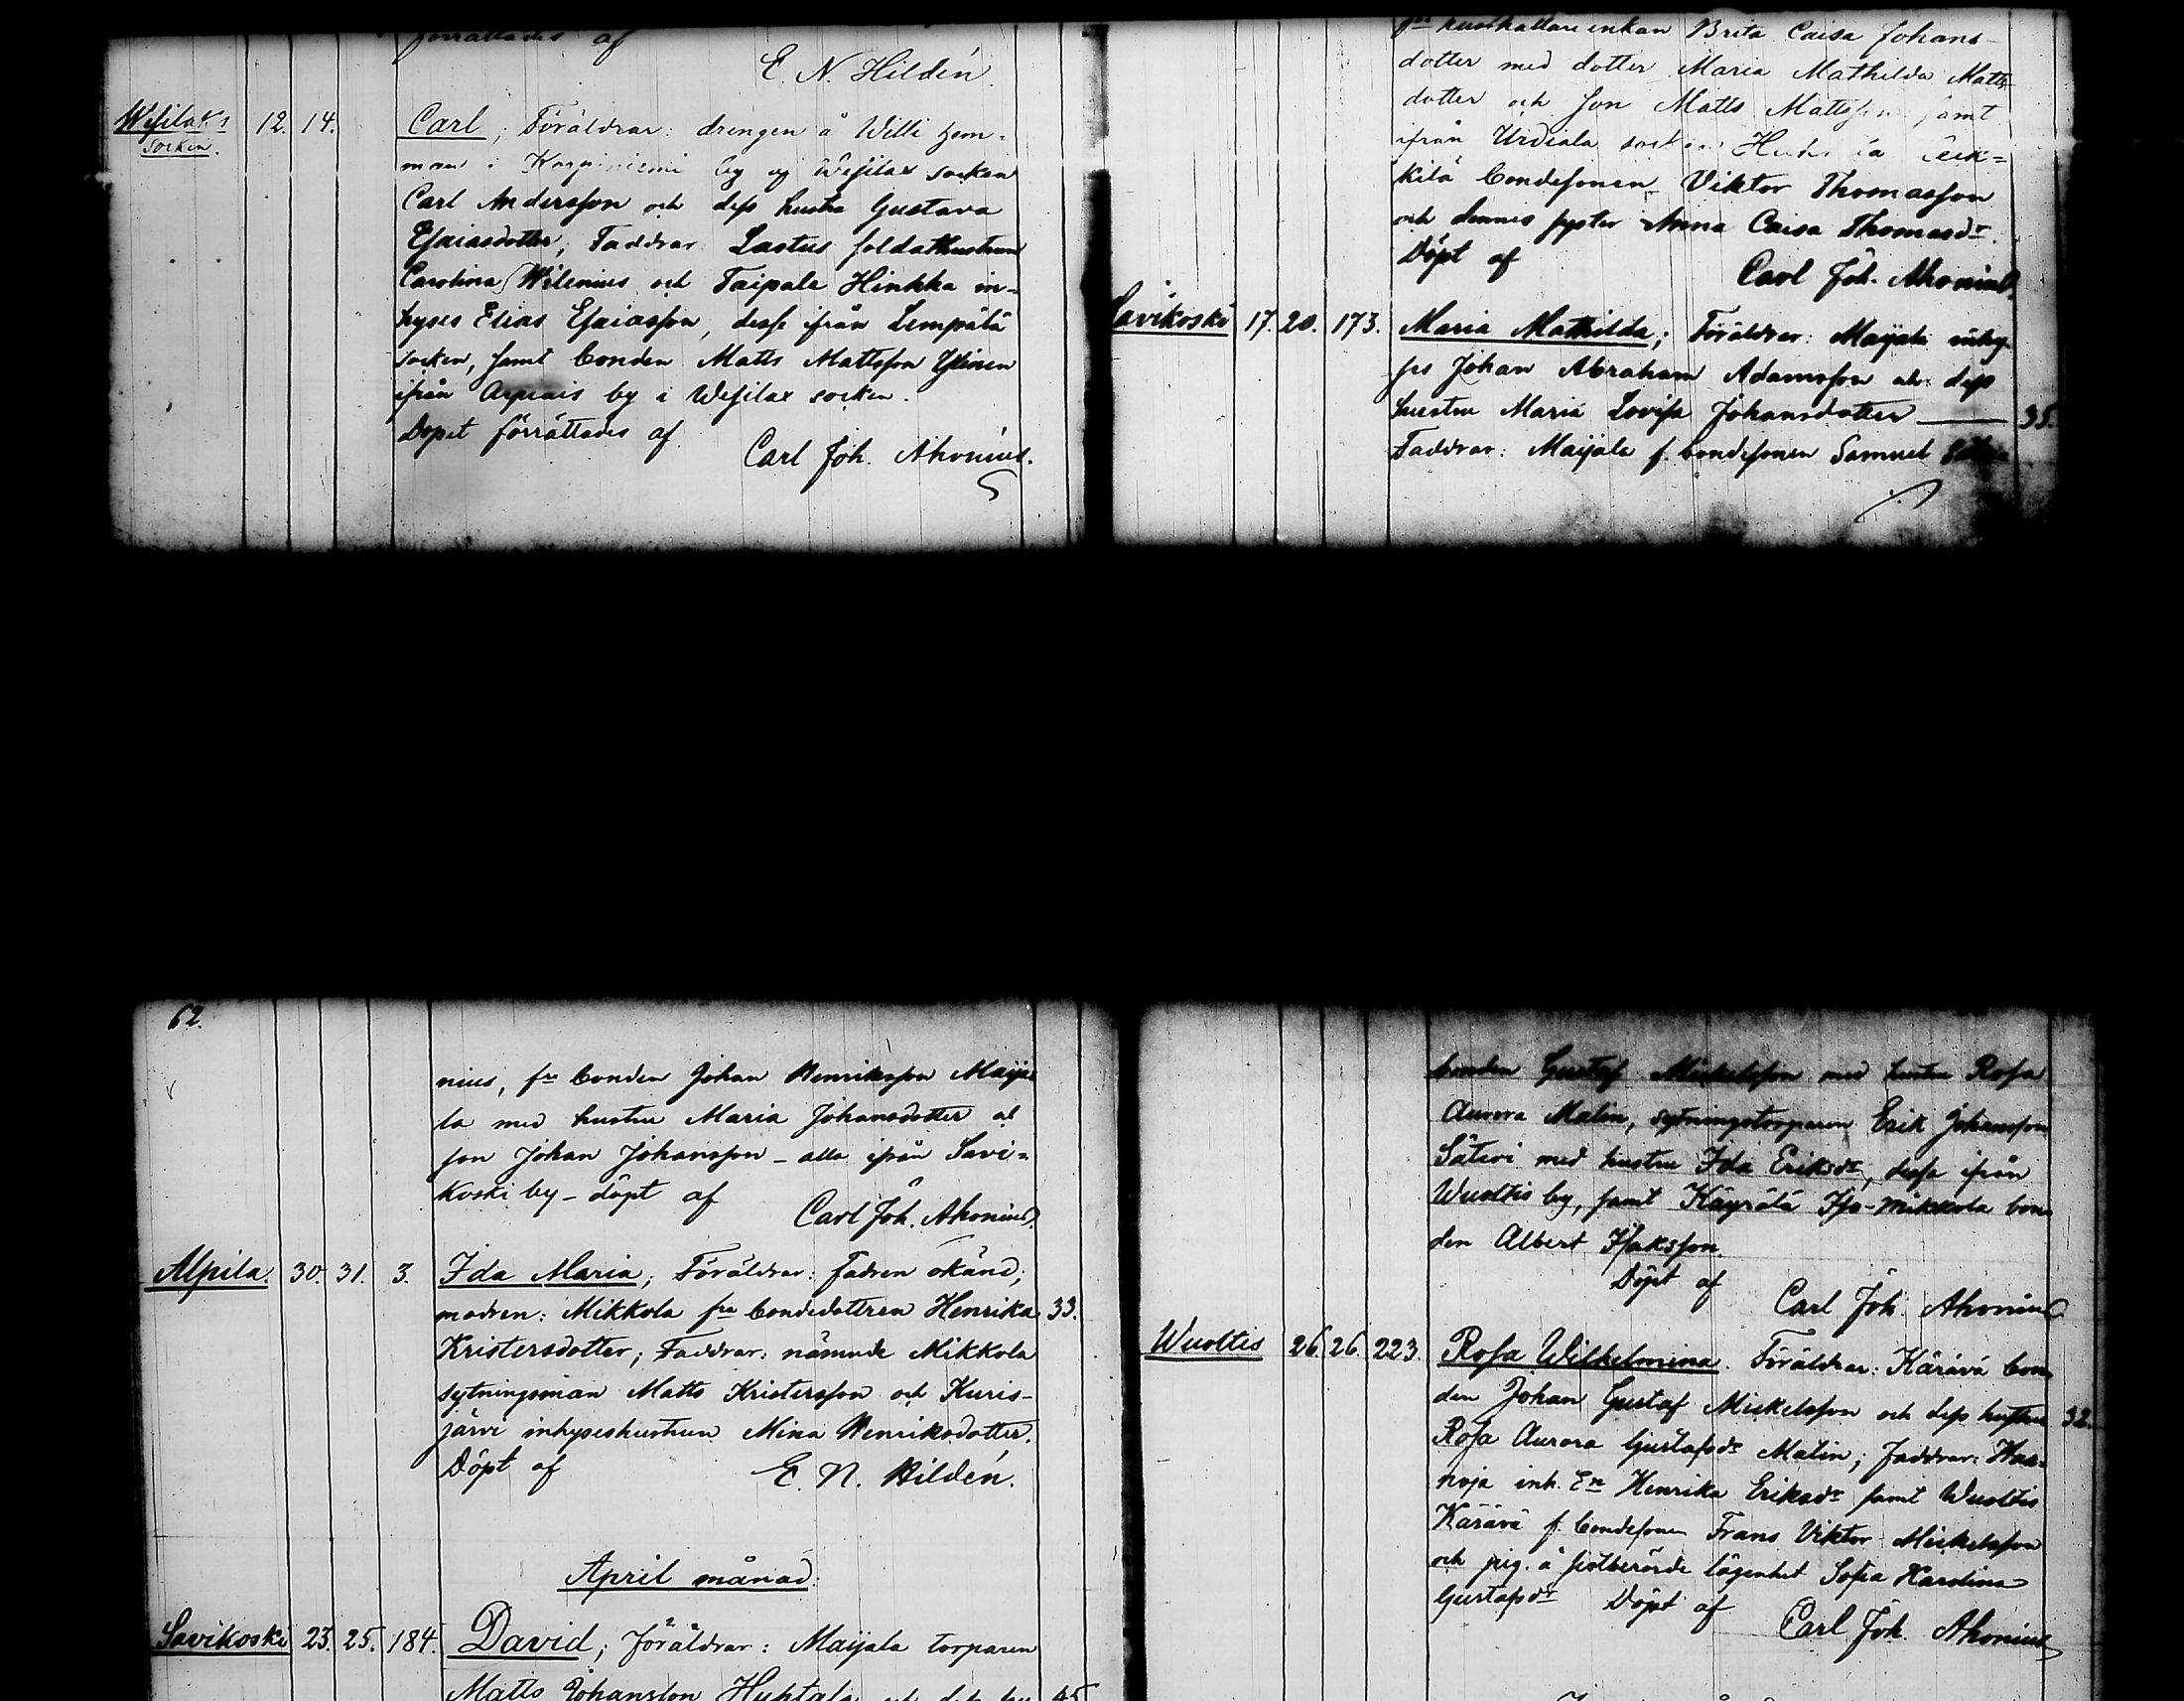 förrättades af
E. N. Hildén.
Wesilaks 12. 14. Carl; Föräldrar: drengen å Willi hem-
socken.
man i by af Wesilax socken
Carl Andersson och dess hustru Gustava
Esaiasdotter; Faddrar: Lastus soldathustrun
Carolina Wilenius och Taipale Hinkka in-
hyses Elias Esaiasson, desse ifrån Lempälä
socken, samt bonden Matts Mattsson Ylinen
ifrån Arpiais by i Wesilax socken.
Dopet förrättades af
Carl Joh. Ahonius.
fre husthållare enkan Brita Caisa Johans-
dotter med dotter Maria Mathilda Matts-
dotter och son Matts Mattsson samt
ifrån Urdiala socken
kilä bondesonen Viktor Thomasson
och dennes syster Anna Caisa Thomasdr.
Döpt af
Carl Joh. Ahonius.
Savikoski 17. 20. 173. Maria Mathilda; Föräldrar: Maijala inhy-
ses Johan Abraham Adamsson och dess
hustru Maria Lovisa Johansdotter — 35.
Faddrar: Maijala f. bondesonen Samuel
62.
nius, fre bonden Johan Henriksson Maija-
la med hustru Maria Johansdotter och
son Johan Johansson - alla ifrån Savi-
koski by - döpt af
Carl Joh. Ahonius.
Alpila. 30. 31. 3. Ida Maria; Föräldrar: fadren okänd;
modren: Mikkola fre bondedottren Henrika 33.
Kristersdotter; Faddrar: nämnde Mikkola
sytningsman Matts Kristersson och Kuris-
järvi inhyseshustrun Mina Henriksdotter.
Döpt af
E. N. Hildén.
April månad:
Savikoski 23. 25. 184. David; Föräldrar: Maijala torparen
Matts Johansson Huhtala och dess hu 45
bonden Gustaf Mickelsson med hustru Rosa
Aurora Malin, sytningstorparen Erik Johansson
Säteri med hustru Ida Eriksdr, dessa ifrån
Wuoltis by, samt Käyrälä Iso-Mikkola bon-
den Albert Isaksson.
Döpt af
Carl Joh. Ahonius
Wuoltis 26. 26. 223. Rosa Wilhelmina. Föräldrar: Kärävä bon-
den Johan Gustaf Mickelsson och dess hustru 32.
Rosa Aurora Gustafsdr Malin; Faddrar: Haa-
noja inh. En Henrika Eriksdr samt Wuoltis
Kärävä f. bondesonen Frans Viktor Mickelsson
och pig. å sistberörde lägenhet Sofia Karolina
Gustafsdr Döpt af
Carl Joh. Ahonius